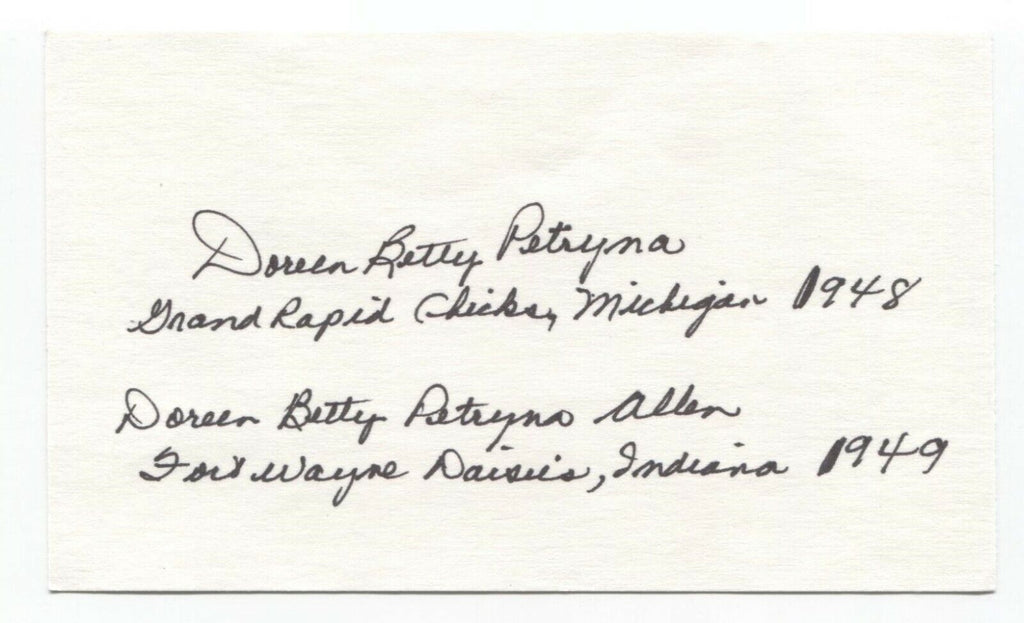 Doreen Betty Petryna
Grand Rapid Chicks, Michigan 1948
Doreen Betty Petryna Allen
Fort Wayne Daisies, Indiana 1949